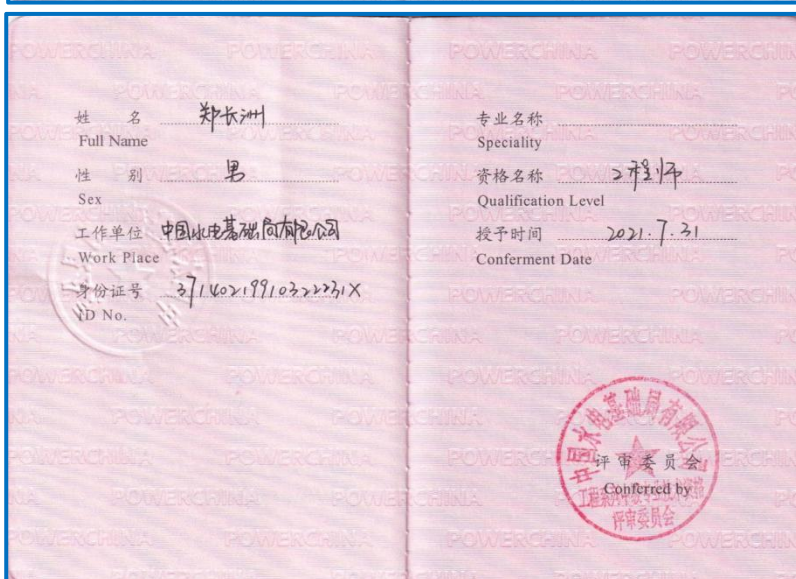 姓 名 郑长洲
Full Name
性 别 男
Sex
工作单位 中国水电基础局有限公司
Work Place
身份证号 37140219910322231X
ID No.
专业名称
Speciality
资格名称 工程师
Qualification Level
授予时间 2021.7.31
Conferment Date
中国水电基础局有限公司
评审委员会
Conferred by
评审委员会
POWERCHINA